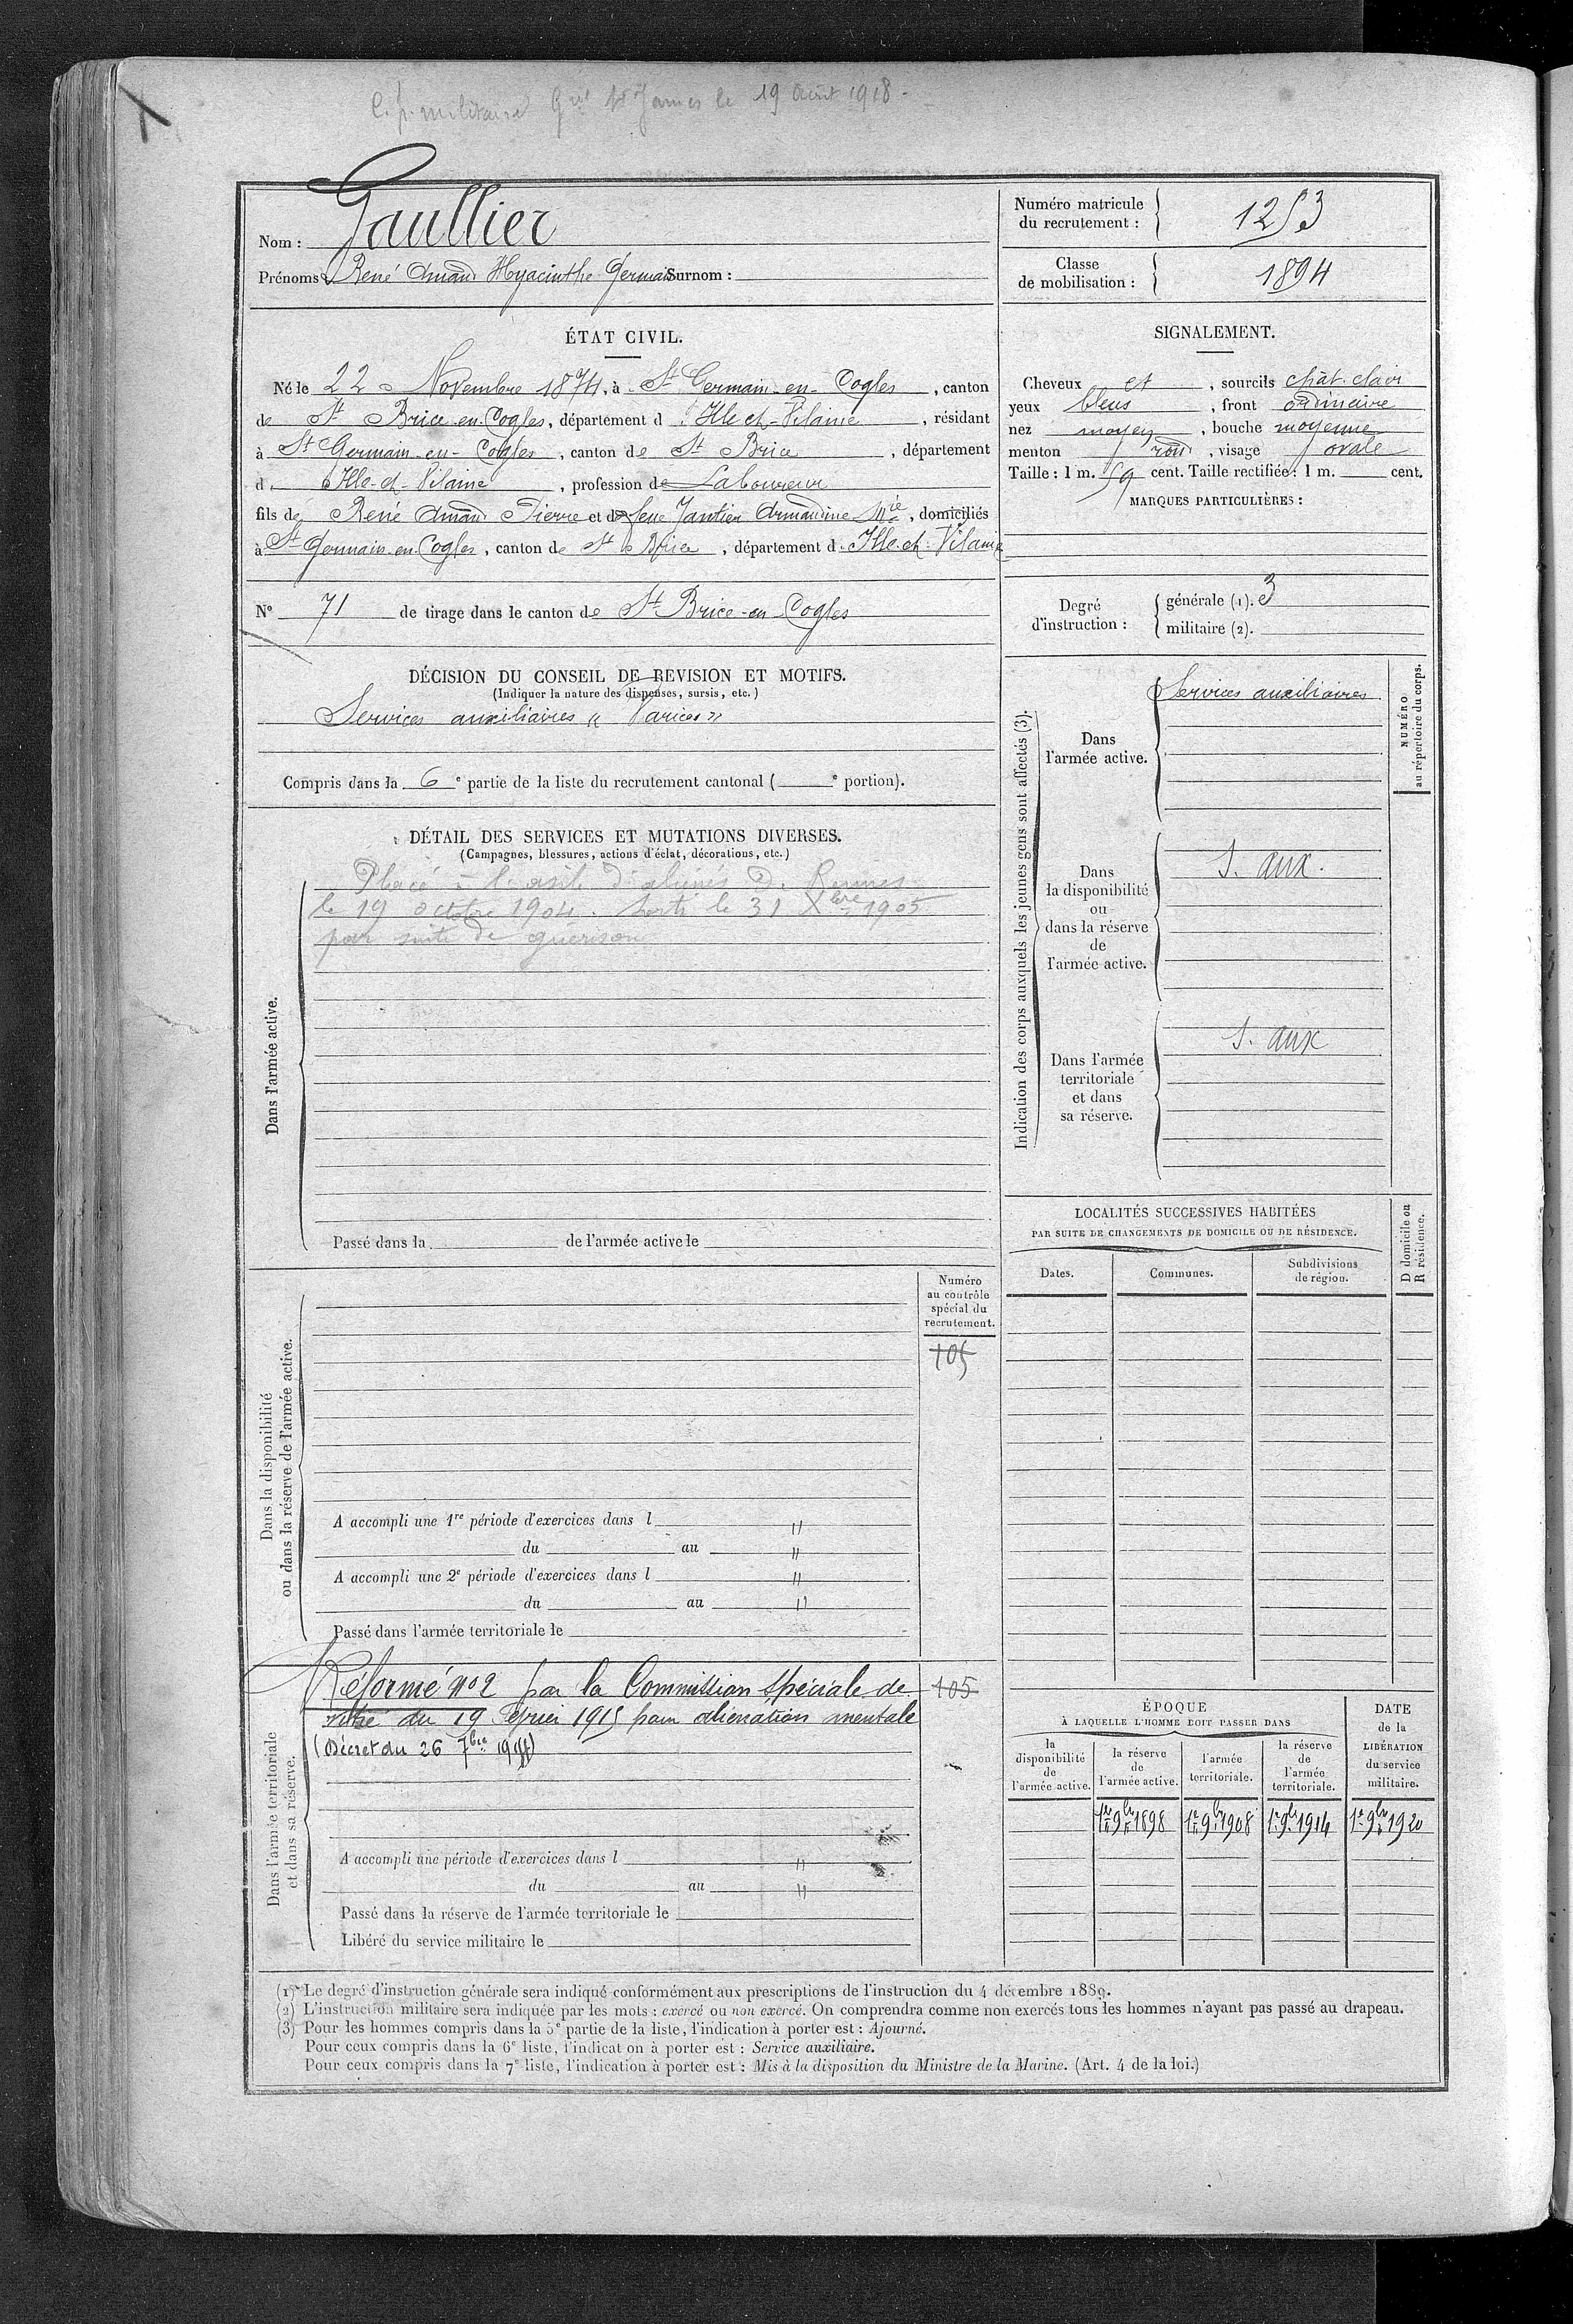 C. p. militaire Gnl St James le 19 Août 1918 -
Nom : Gaullier
Prénoms : René Amand Hyacinthe Germain Surnom :
Numéro matricule du recrutement : 1253
Classe de mobilisation : 1894
ÉTAT CIVIL.
Né le 22 Novembre 1874, à St Germain-en-Cogles, canton
de St Brice-en-Cogles, département d'Ille-et-Vilaine, résidant
à St Germain-en-Cogles, canton de St Brice, département
d'Ille-et-Vilaine, profession de Laboureur
fils de René Amand Pierre et de feue Jantier Armandine Mie, domiciliés
à St Germain-en-Cogles, canton de St Brice, département d'Ille-et-Vilaine
N° 71 de tirage dans le canton de St Brice-en-Cogles
SIGNALEMENT.
Cheveux et, sourcils chât. clair
yeux bleus, front ordinaire
nez moyen, bouche moyenne
menton rond, visage ovale
Taille : 1 m. 59 cent. Taille rectifiée : 1 m. cent.
MARQUES PARTICULIÈRES :
Degré d'instruction : générale (1). 3
militaire (2).
DÉCISION DU CONSEIL DE REVISION ET MOTIFS.
(Indiquer la nature des dispenses, sursis, etc.)
Services auxiliaires « Varices »
Compris dans la 6e partie de la liste du recrutement cantonal ( e portion).
DÉTAIL DES SERVICES ET MUTATIONS DIVERSES.
(Campagnes, blessures, actions d'éclat, décorations, etc.)
Dans l'armée active.
Placé à l'asile d'aliénés de Rennes
le 19 octobre 1904. Sorti le 31 Xbre 1905
par suite de guérison
Passé dans la de l'armée active le
Indication des corps auxquels les jeunes gens sont affectés (3).
NUMÉRO
au répertoire du corps.
Dans
l'armée active.
Services auxiliaires
Dans
la disponibilité
ou
dans la réserve
de
l'armée active.
S. aux.
Dans l'armée
territoriale
et dans
sa réserve.
S. aux
LOCALITÉS SUCCESSIVES HABITÉES
PAR SUITE DE CHANGEMENTS DE DOMICILE OU DE RÉSIDENCE.
D domicile ou
R résidence.
Dates.
Communes.
Subdivisions
de région.
Dans la disponibilité
ou dans la réserve de l'armée active.
Numéro
au contrôle
spécial du
recrutement.
105
A accompli une 1re période d'exercices dans l "
du au "
A accompli une 2e période d'exercices dans l "
du au "
Passé dans l'armée territoriale le
Dans l'armée territoriale
et dans sa réserve.
Réformé no 2 par la Commission spéciale de
Vitré du 19 Février 1915 pour aliénation mentale
(Décret du 26 7bre 1914)
105
A accompli une période d'exercices dans l "
du au "
Passé dans la réserve de l'armée territoriale le
Libéré du service militaire le
ÉPOQUE
À LAQUELLE L'HOMME DOIT PASSER DANS
la
disponibilité
de
l'armée active.
la réserve
de
l'armée active.
l'armée
territoriale.
la réserve
de
l'armée
territoriale.
DATE
de la
LIBÉRATION
du service
militaire.
1er 9bre 1898 1er 9bre 1908 1er 9bre 1914 1er 9bre 1920
(1) Le degré d'instruction générale sera indiqué conformément aux prescriptions de l'instruction du 4 décembre 1889.
(2) L'instruction militaire sera indiquée par les mots : exercé ou non exercé. On comprendra comme non exercés tous les hommes n'ayant pas passé au drapeau.
(3) Pour les hommes compris dans la 5e partie de la liste, l'indication à porter est : Ajourné.
Pour ceux compris dans la 6e liste, l'indication à porter est : Service auxiliaire.
Pour ceux compris dans la 7e liste, l'indication à porter est : Mis à la disposition du Ministre de la Marine. (Art. 4 de la loi.)